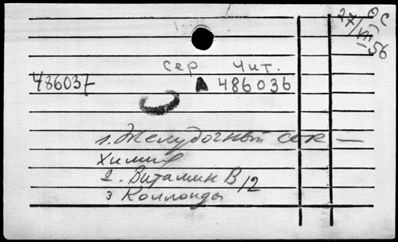 27/VII-56
ОС
сер чит.
486037
А 486036
1. Желудочный сок —
химия
2. Витамин B12
3 Коллоиды